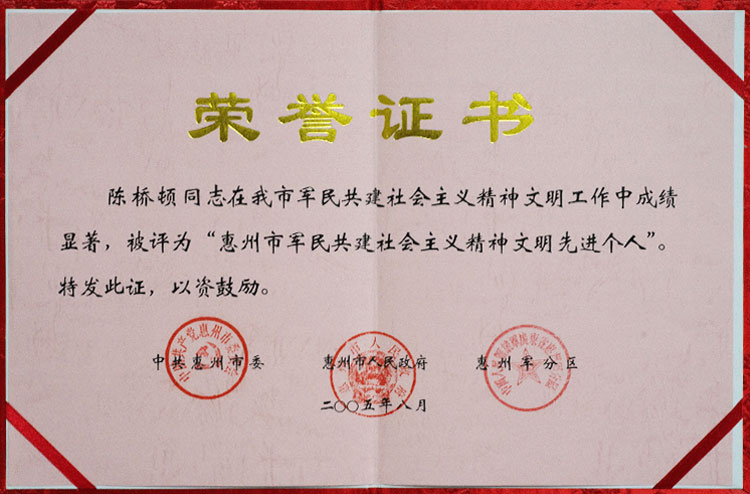 荣誉证书
陈桥顿同志在我市军民共建社会主义精神文明工作中成绩
显著，被评为“惠州市军民共建社会主义精神文明先进个人”。
特发此证，以资鼓励。
中共惠州市委 惠州市人民政府 惠州军分区
二〇〇五年八月